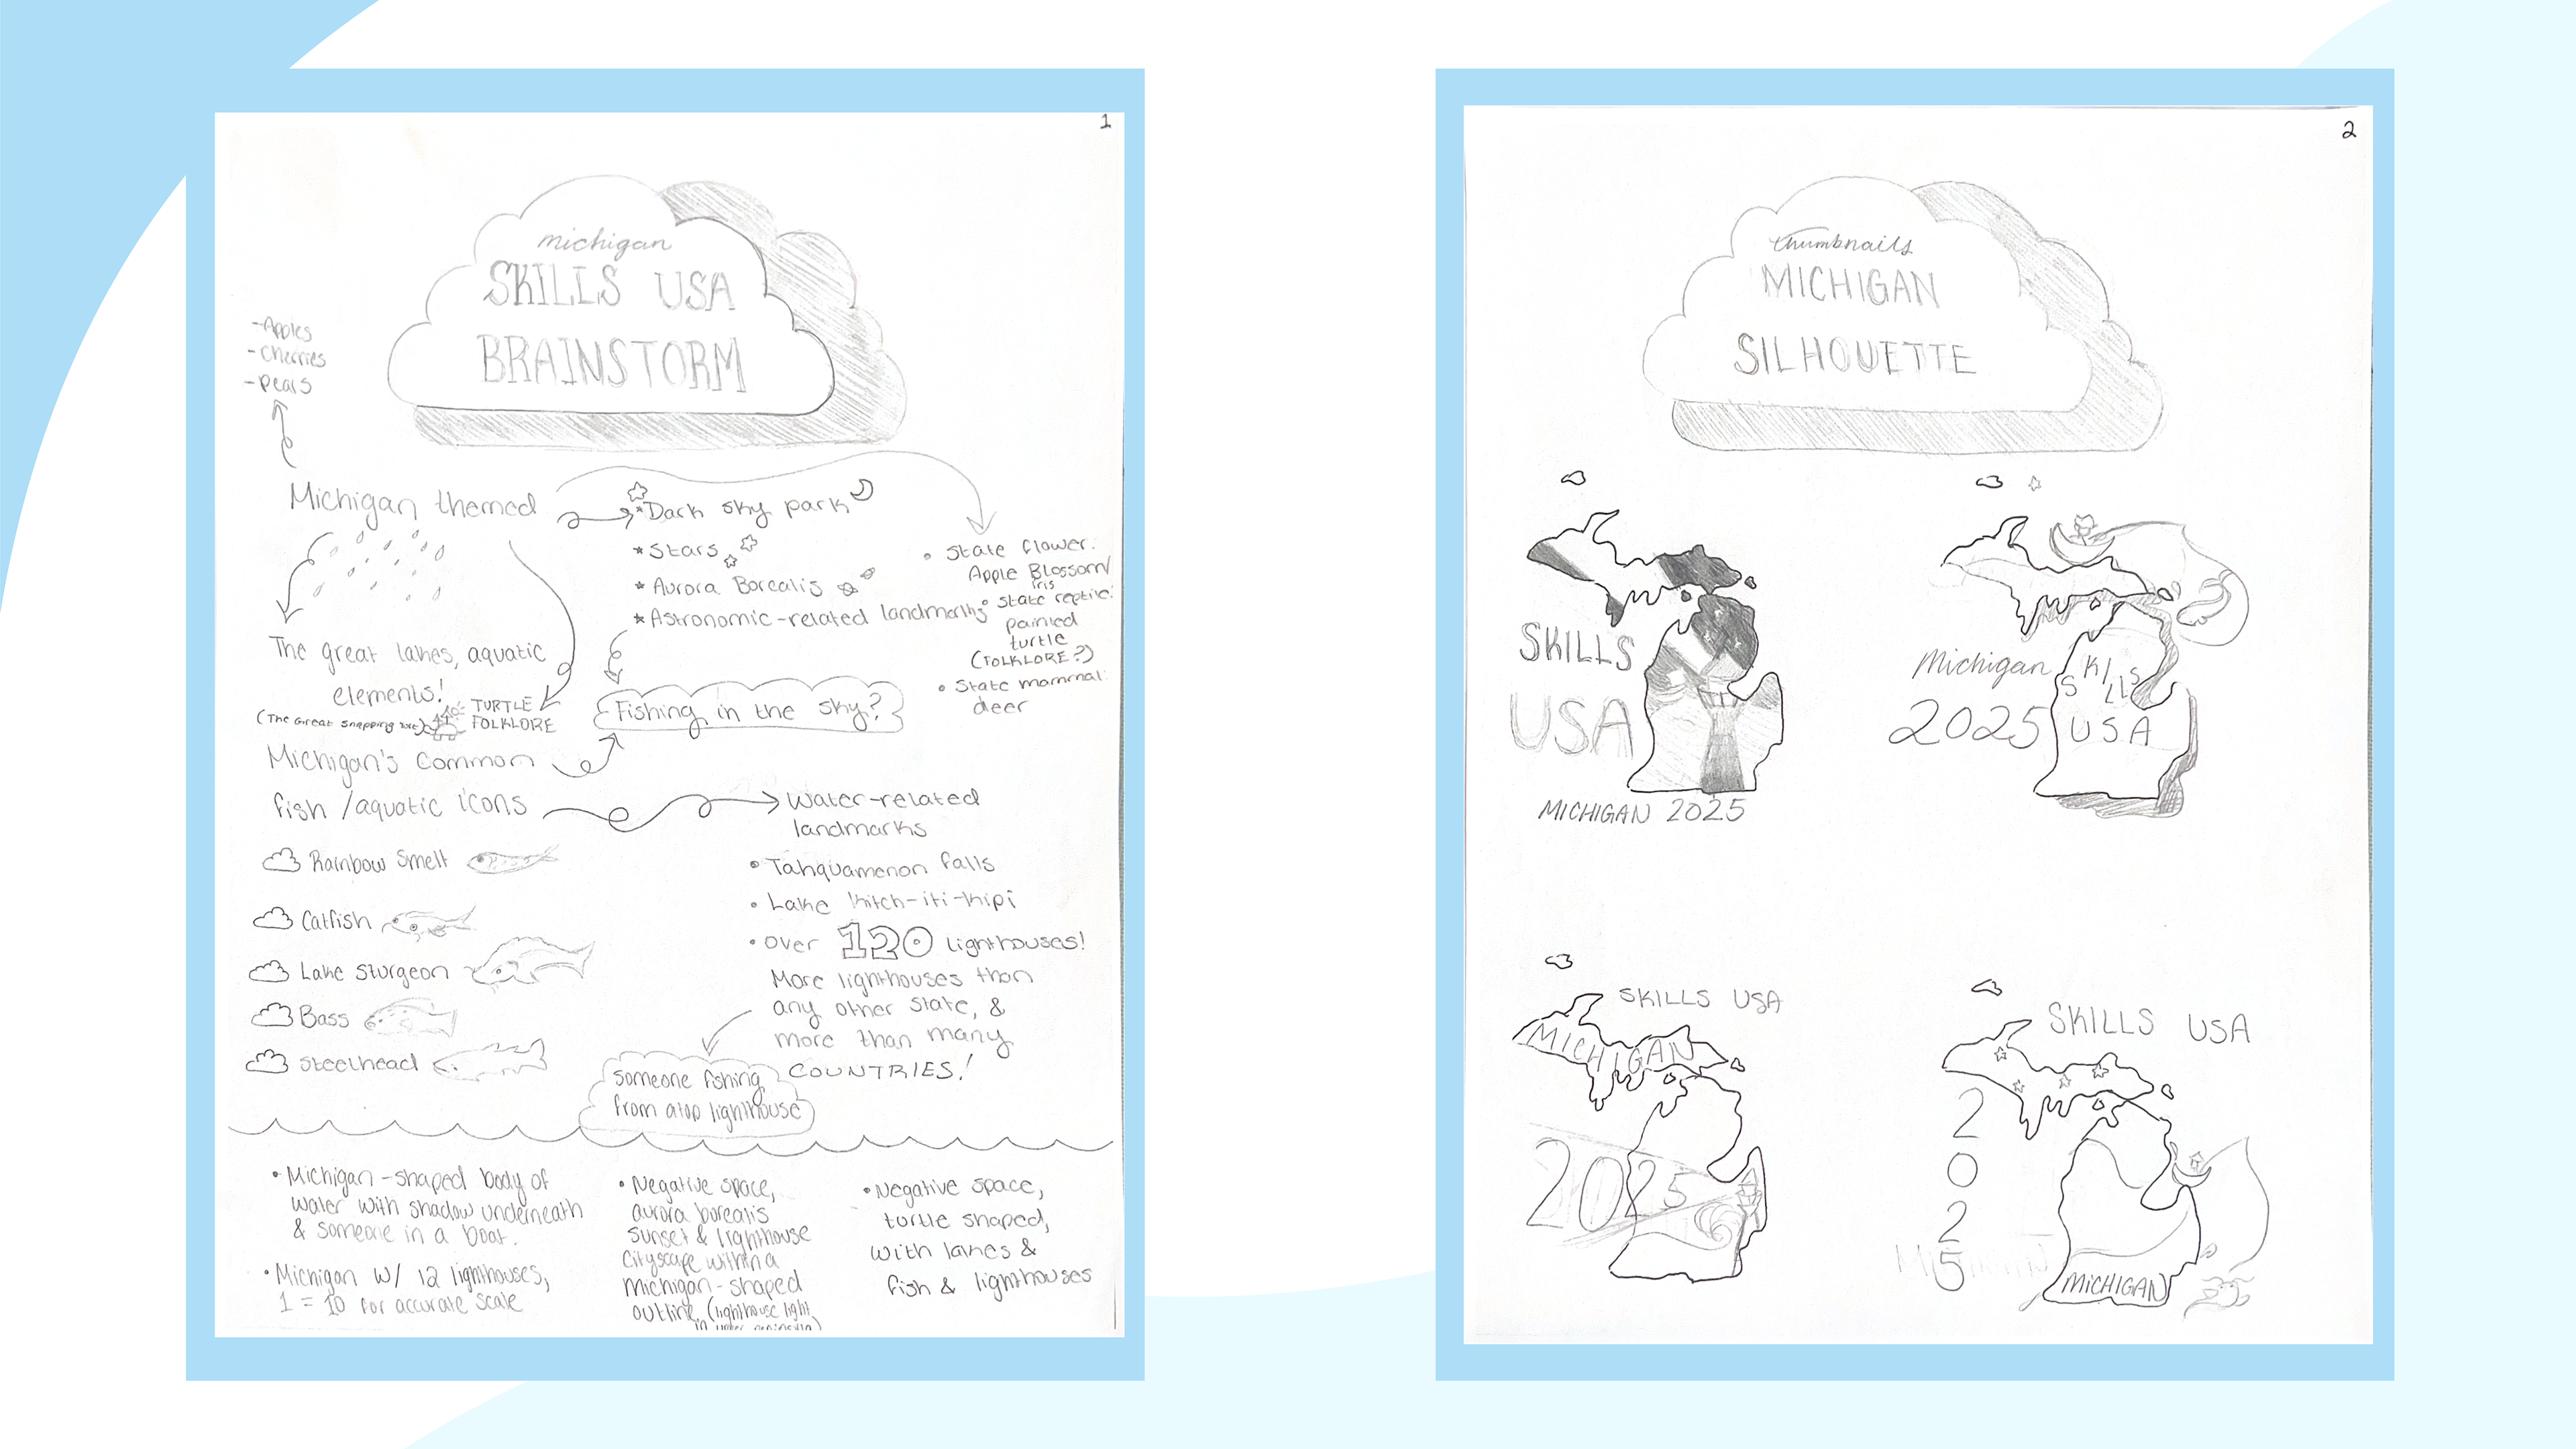 1
michigan
SKILLS USA
BRAINSTORM
-Apples
-Cherries
-Pears
Michigan themed
*Dark sky park
*Stars
*Aurora Borealis
*Astronomic-related landmarks
• State flower:
Apple Blossom/
Iris
• State reptile:
painted
turtle
(FOLKLORE?)
• State mammal:
deer
The great lakes, aquatic
elements!
(The Great snapping
TURTLE
FOLKLORE
Fishing in the sky?
Michigan's common
fish /aquatic icons
Water-related
landmarks
Rainbow Smelt
Catfish
Lake Sturgeon
Bass
Steelhead
• Tahquamenon falls
• Lake kitch-iti-kipi
• Over 120 lighthouses!
More lighthouses than
any other state, &
more than many
COUNTRIES!
Someone fishing
from atop lighthouse
• Michigan-shaped body of
water with shadow underneath
& someone in a boat.
• Michigan w/ 12 lighthouses,
1 = 10 for accurate scale
• Negative space,
aurora borealis
sunset & lighthouse
cityscape within a
michigan-shaped
outline. (lighthouse light
in upper peninsula)
• Negative space,
turtle shaped,
with lakes &
fish & lighthouses
2
thumbnails
MICHIGAN
SILHOUETTE
SKILLS
USA
MICHIGAN 2025
Michigan
2025
SKILLS
USA
SKILLS USA
MICHIGAN
2025
SKILLS USA
2
0
2
5
MICHIGAN